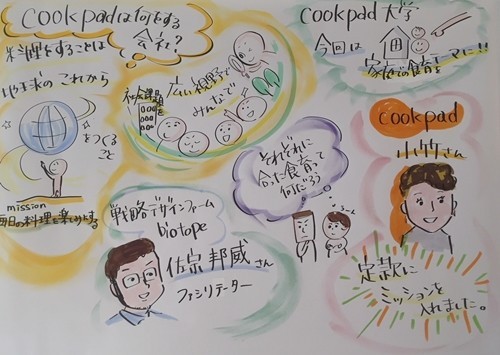 cookpadは何をする
会社？
料理をすることは
地球のこれから
をつくる
こと
mission
毎日の料理を楽しみにする
社会課題
を
広い視野で
みんなで
cookpad 大学
今回は
家庭での食育をテーマに!!
それぞれに
合った食育って
何だろう
うーん
cookpad
小竹さん
定款に
ミッションを
入れました。
戦略デザインファーム
biotope
佐宗邦威さん
ファシリテーター